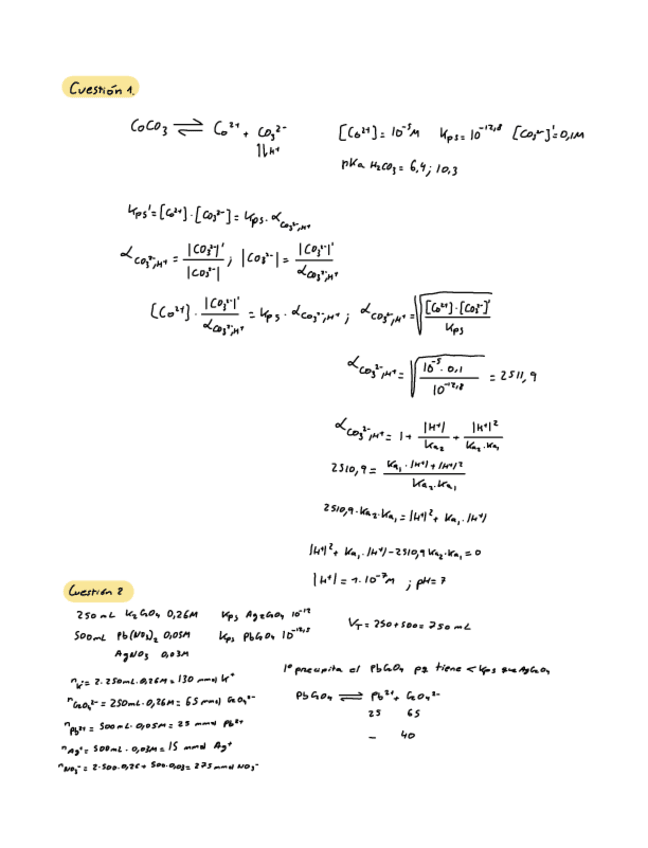 Cuestión 1.
CoCO₃ ⇌ Co²⁺ + CO₃²⁻
⇅ H⁺
[Co²⁺] = 10⁻⁵M   Kps = 10⁻¹²'⁸   [CO₃²⁻]' = 0,1M
pKa H₂CO₃ = 6,4 ; 10,3
Kps' = [Co²⁺]·[CO₃²⁻] = Kps·α CO₃²⁻,H⁺
α CO₃²⁻,H⁺ = |CO₃²⁻|' / |CO₃²⁻| ; |CO₃²⁻| = |CO₃²⁻|' / α CO₃²⁻,H⁺
[Co²⁺] · |CO₃²⁻|' / α CO₃²⁻,H⁺ = Kps · α CO₃²⁻,H⁺ ; α CO₃²⁻,H⁺ = √([Co²⁺]·[CO₃²⁻]' / Kps)
α CO₃²⁻,H⁺ = √(10⁻⁵·0,1 / 10⁻¹²'⁸) = 2511,9
α CO₃²⁻,H⁺ = 1 + |H⁺| / Ka₂ + |H⁺|² / Ka₂·Ka₁
2510,9 = Ka₁·|H⁺| + |H⁺|² / Ka₂·Ka₁
2510,9·Ka₂·Ka₁ = |H⁺|² + Ka₁·|H⁺|
|H⁺|² + Ka₁·|H⁺| - 2510,9 Ka₂·Ka₁ = 0
|H⁺| = 1·10⁻⁷M ; pH = 7
Cuestión 2
250 mL K₂CrO₄ 0,26M   Kps Ag₂CrO₄ 10⁻¹²
500mL Pb(NO₃)₂ 0,05M   Kps PbCrO₄ 10⁻¹²'⁵
AgNO₃ 0,03M
V_T = 250 + 500 = 750 mL
n K⁺ = 2·250mL·0,26M = 130 mmol K⁺
n CrO₄²⁻ = 250mL·0,26M = 65 mmol CrO₄²⁻
n Pb²⁺ = 500mL·0,05M = 25 mmol Pb²⁺
n Ag⁺ = 500mL·0,03M = 15 mmol Ag⁺
1º precipita el PbCrO₄ pq tiene < Kps que Ag₂CrO₄
PbCrO₄ ⇌ Pb²⁺ + CrO₄²⁻
25   65
–   40